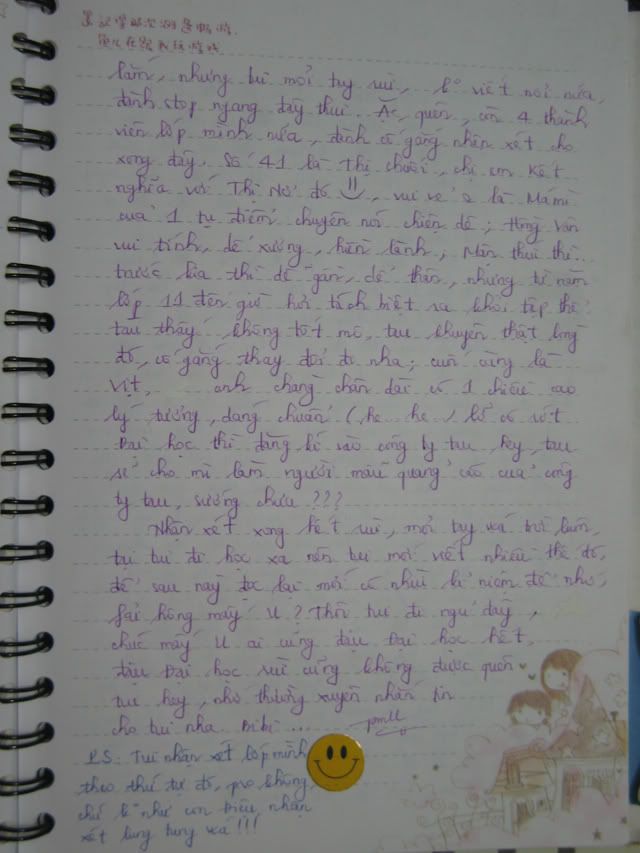 lắm, nhưng bi mỏi tay rùi, lò viết nổi nữa,
đành stop ngang đây thui. Ác, quên, còn 4 thành
viên lớp mình nữa, đành cố gắng nhận xét cho
xong đây. Số 41 là Thị chuối, chị em kết
nghĩa với Thị Nở đó, vui vẻ & là Mámì
của 1 tụ điểm chuyên nói chiện dê; Hồng Vân
vui tính, dễ xương, hiền lành; Mẫn thui thì..
trước kia thì dễ gần, dễ thân, nhưng từ năm
lớp 11 đến giờ hơi tách biệt ra khỏi tập thể
tau thấy không tốt mô, tau khuyên thật lòng
đó, cố gắng thay đổi đi nha; cuối cùng là
Vịt, anh chàng chân dài có 1 chiều cao
lý tưởng, dáng chuẩn (he he) lỡ có rớt
Đại học thì đăng kí vào công ty tau, hey, tau
sẽ cho mi làm người mẫu quảng cáo của công
ty tau, sướng chưa ???
Nhận xét xong hết rùi, mỏi tay wá trời luôn,
tại tui đi học xa nên tui mới viết nhiều thế đó,
để sau này đọc lại mới có nhìu kỉ niệm để nhớ,
fải hông mấy u? Thôi tui đi ngủ đây,
chúc mấy u ai cũng đậu Đại học hết,
đậu Đại học rùi cũng không được quên
tui hey, nhớ thường xuyên nhắn tin
cho tui nha. Bibi ...
P.S: Tui nhận xét lớp mình
theo thứ tự đó, pro không,
chứ k như con Diệu nhận
xét lung tung wá!!!